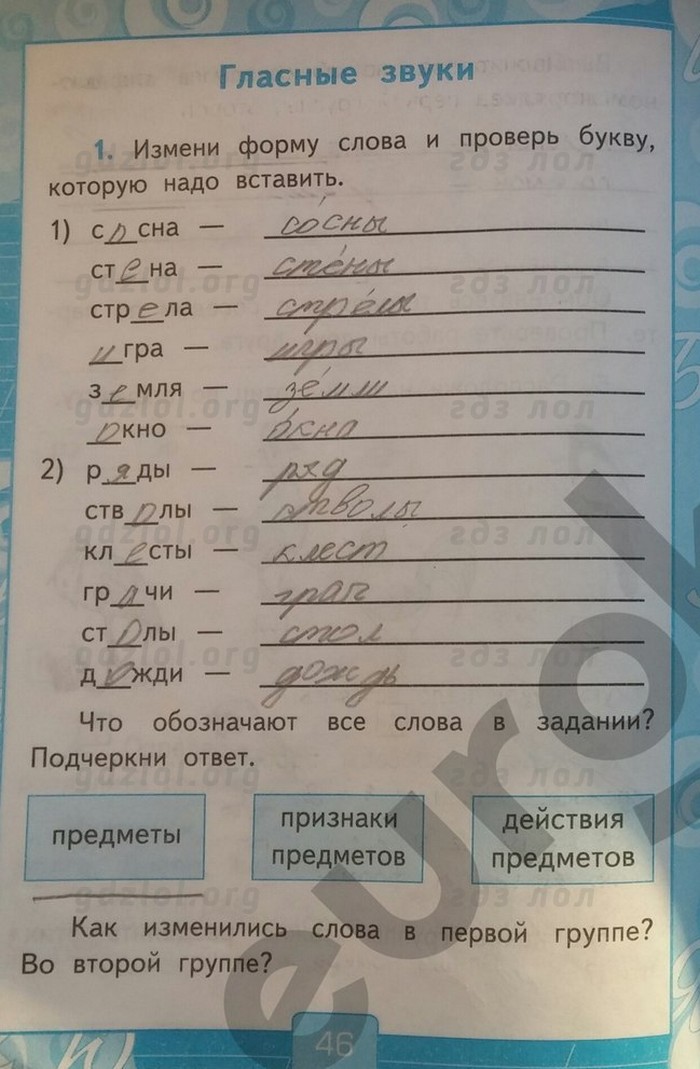 Гласные звуки
1. Измени форму слова и проверь букву,
которую надо вставить.
1) сосна — со́сны
стена — сте́ны
стрела — стре́лы
игра — игры
земля — зе́мли
окно — о́кна
2) ряды — ряд
стволы — стволы
клесты — клест
грачи — грач
столы — стол
дожди — дождь
Что обозначают все слова в задании?
Подчеркни ответ.
предметы
признаки предметов
действия предметов
Как изменились слова в первой группе?
Во второй группе?
46
gdzlol.org
гдз лол
eurok